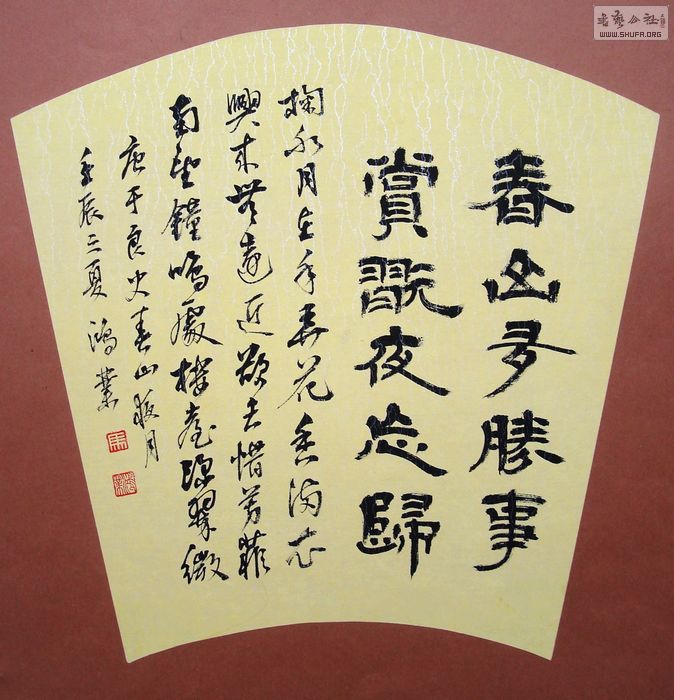 春山多勝事
賞翫夜忘歸
掬水月在手弄花香滿衣
興來無遠近欲去惜芳菲
南望鐘鳴處樓臺深翠微
唐于良史春山夜月
壬辰三夏 鴻業
書藝公社
WWW.SHUFA.ORG